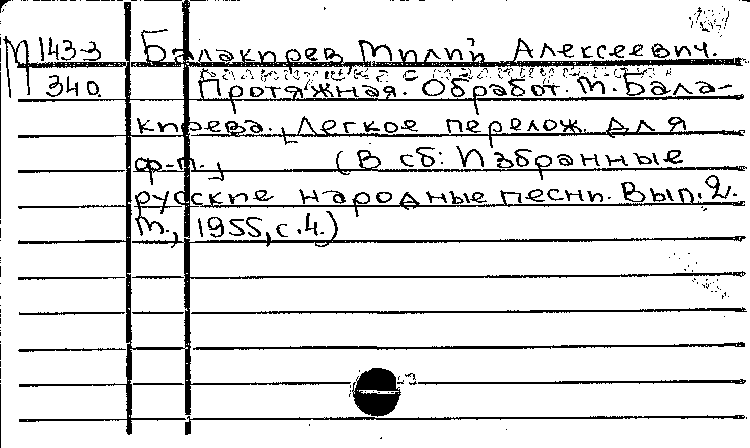 М 143-3 Балакирев Милий Алексеевич.
340 Протяжная. Обработ. М. Бала-
кирева. [Легкое перелож. для
ф-п.] (В сб: Избранные
русские народные песни. Вып. 2.
М., 1955, с. 4.)